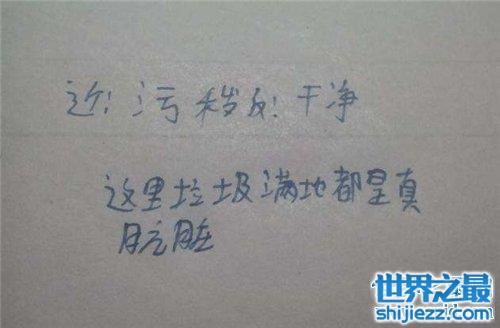 近:污秽反:干净
这里垃圾满地都是真
肮脏
世界之最
shijiezz.com